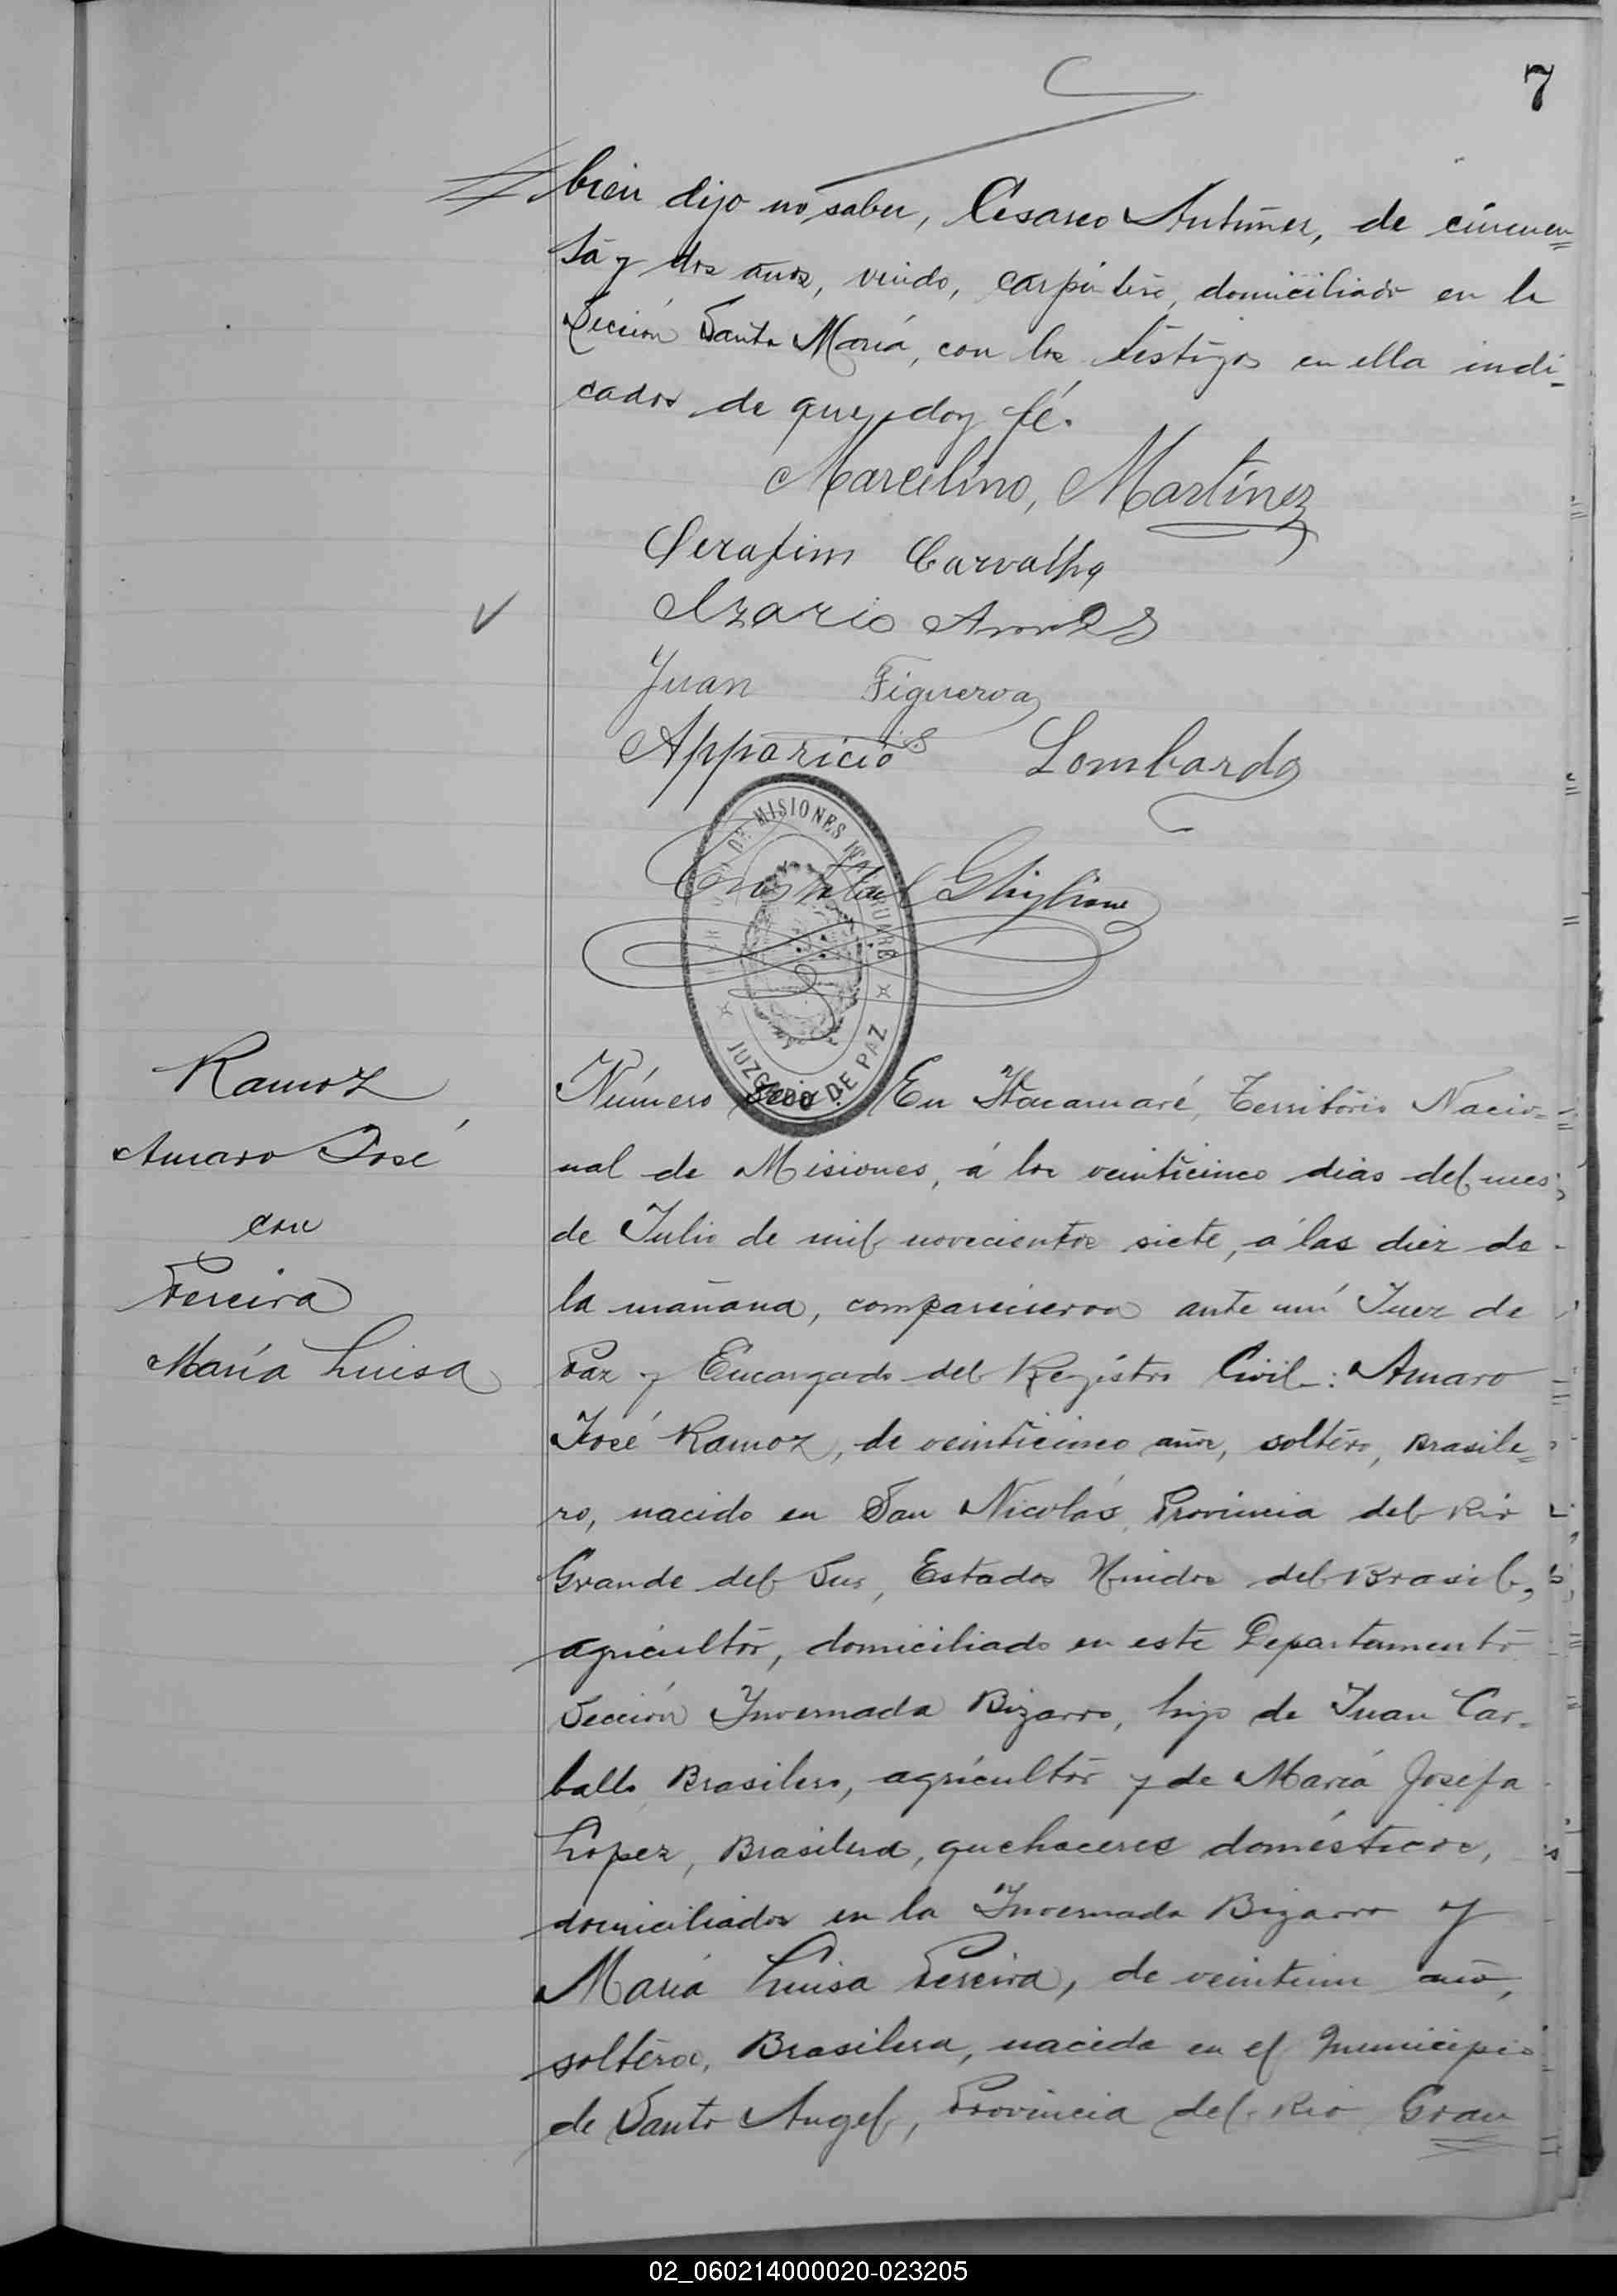 7
bien dijo no saber, Cesareo Antunez, de cincuen=
ta y dos años, viudo, carpintero, domiciliado en la
Sección Santa María, con los testigos en ella indi-
cados de que doy fé.
Marcelino, Martínez
Serafim Carvalho
Juan Figueroa
Apparicio Lombardo
Cristobal Ghiglione
MISIONES
JUZGADO DE PAZ
Ramoz
Amaro José
con
Pereira
María Luisa
Número Seis: En Itacaruaré, Territorio Nacio=
nal de Misiones, á los veinticinco dias del mes
de Julio de mil novecientos siete, á las diez de
la mañana, comparecieron ante mí Juez de
Paz y Encargado del Registro Civil: Amaro
José Ramoz, de veinticinco años, soltero, Brasile=
ro, nacido en San Nicolás, Provincia del Rio
Grande del Sur, Estados Unidos del Brasil,
agricultor, domiciliado en este Departamento
Sección Invernada Bizarro, hijo de Juan Car-
ballo, Brasilero, agricultor y de María Josefa
Lopez, Brasilera, quehaceres domésticos,
domiciliados en la Invernada Bizarro y
María Luisa Pereira, de veintiun año,
soltera, Brasilera, nacida en el Municipio
de Santo Angel, Provincia del Rio Gran
02_060214000020-023205